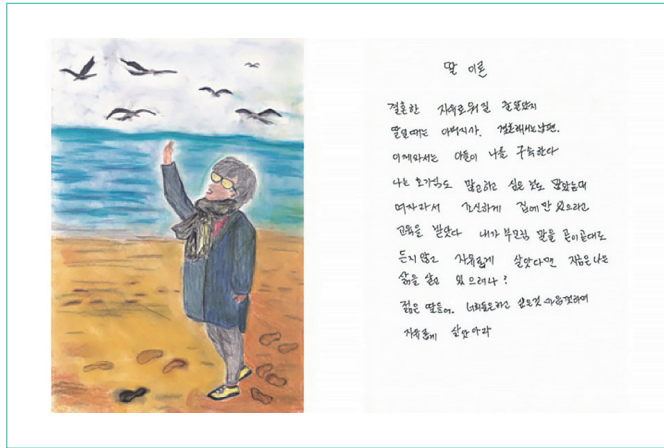 딸 이론
결혼한 자유로워질 줄 알았지
딸일때는 아버지가. 결혼해서는 남편.
이제와서는 아들이 나를 구속한다
나는 호기심도 많고 하고 싶은 것도 많았는데
여자라서 조신하게 집에만 있으라고
교육을 받았다 내가 부모님 말을 곧이곧대로
듣지 않고 자유롭게 살았다면 지금은 나은
삶을 살고 있으려나?
젊은 딸들아. 너희들은 하고 싶은것 마음것하며
자유롭게 살았아라